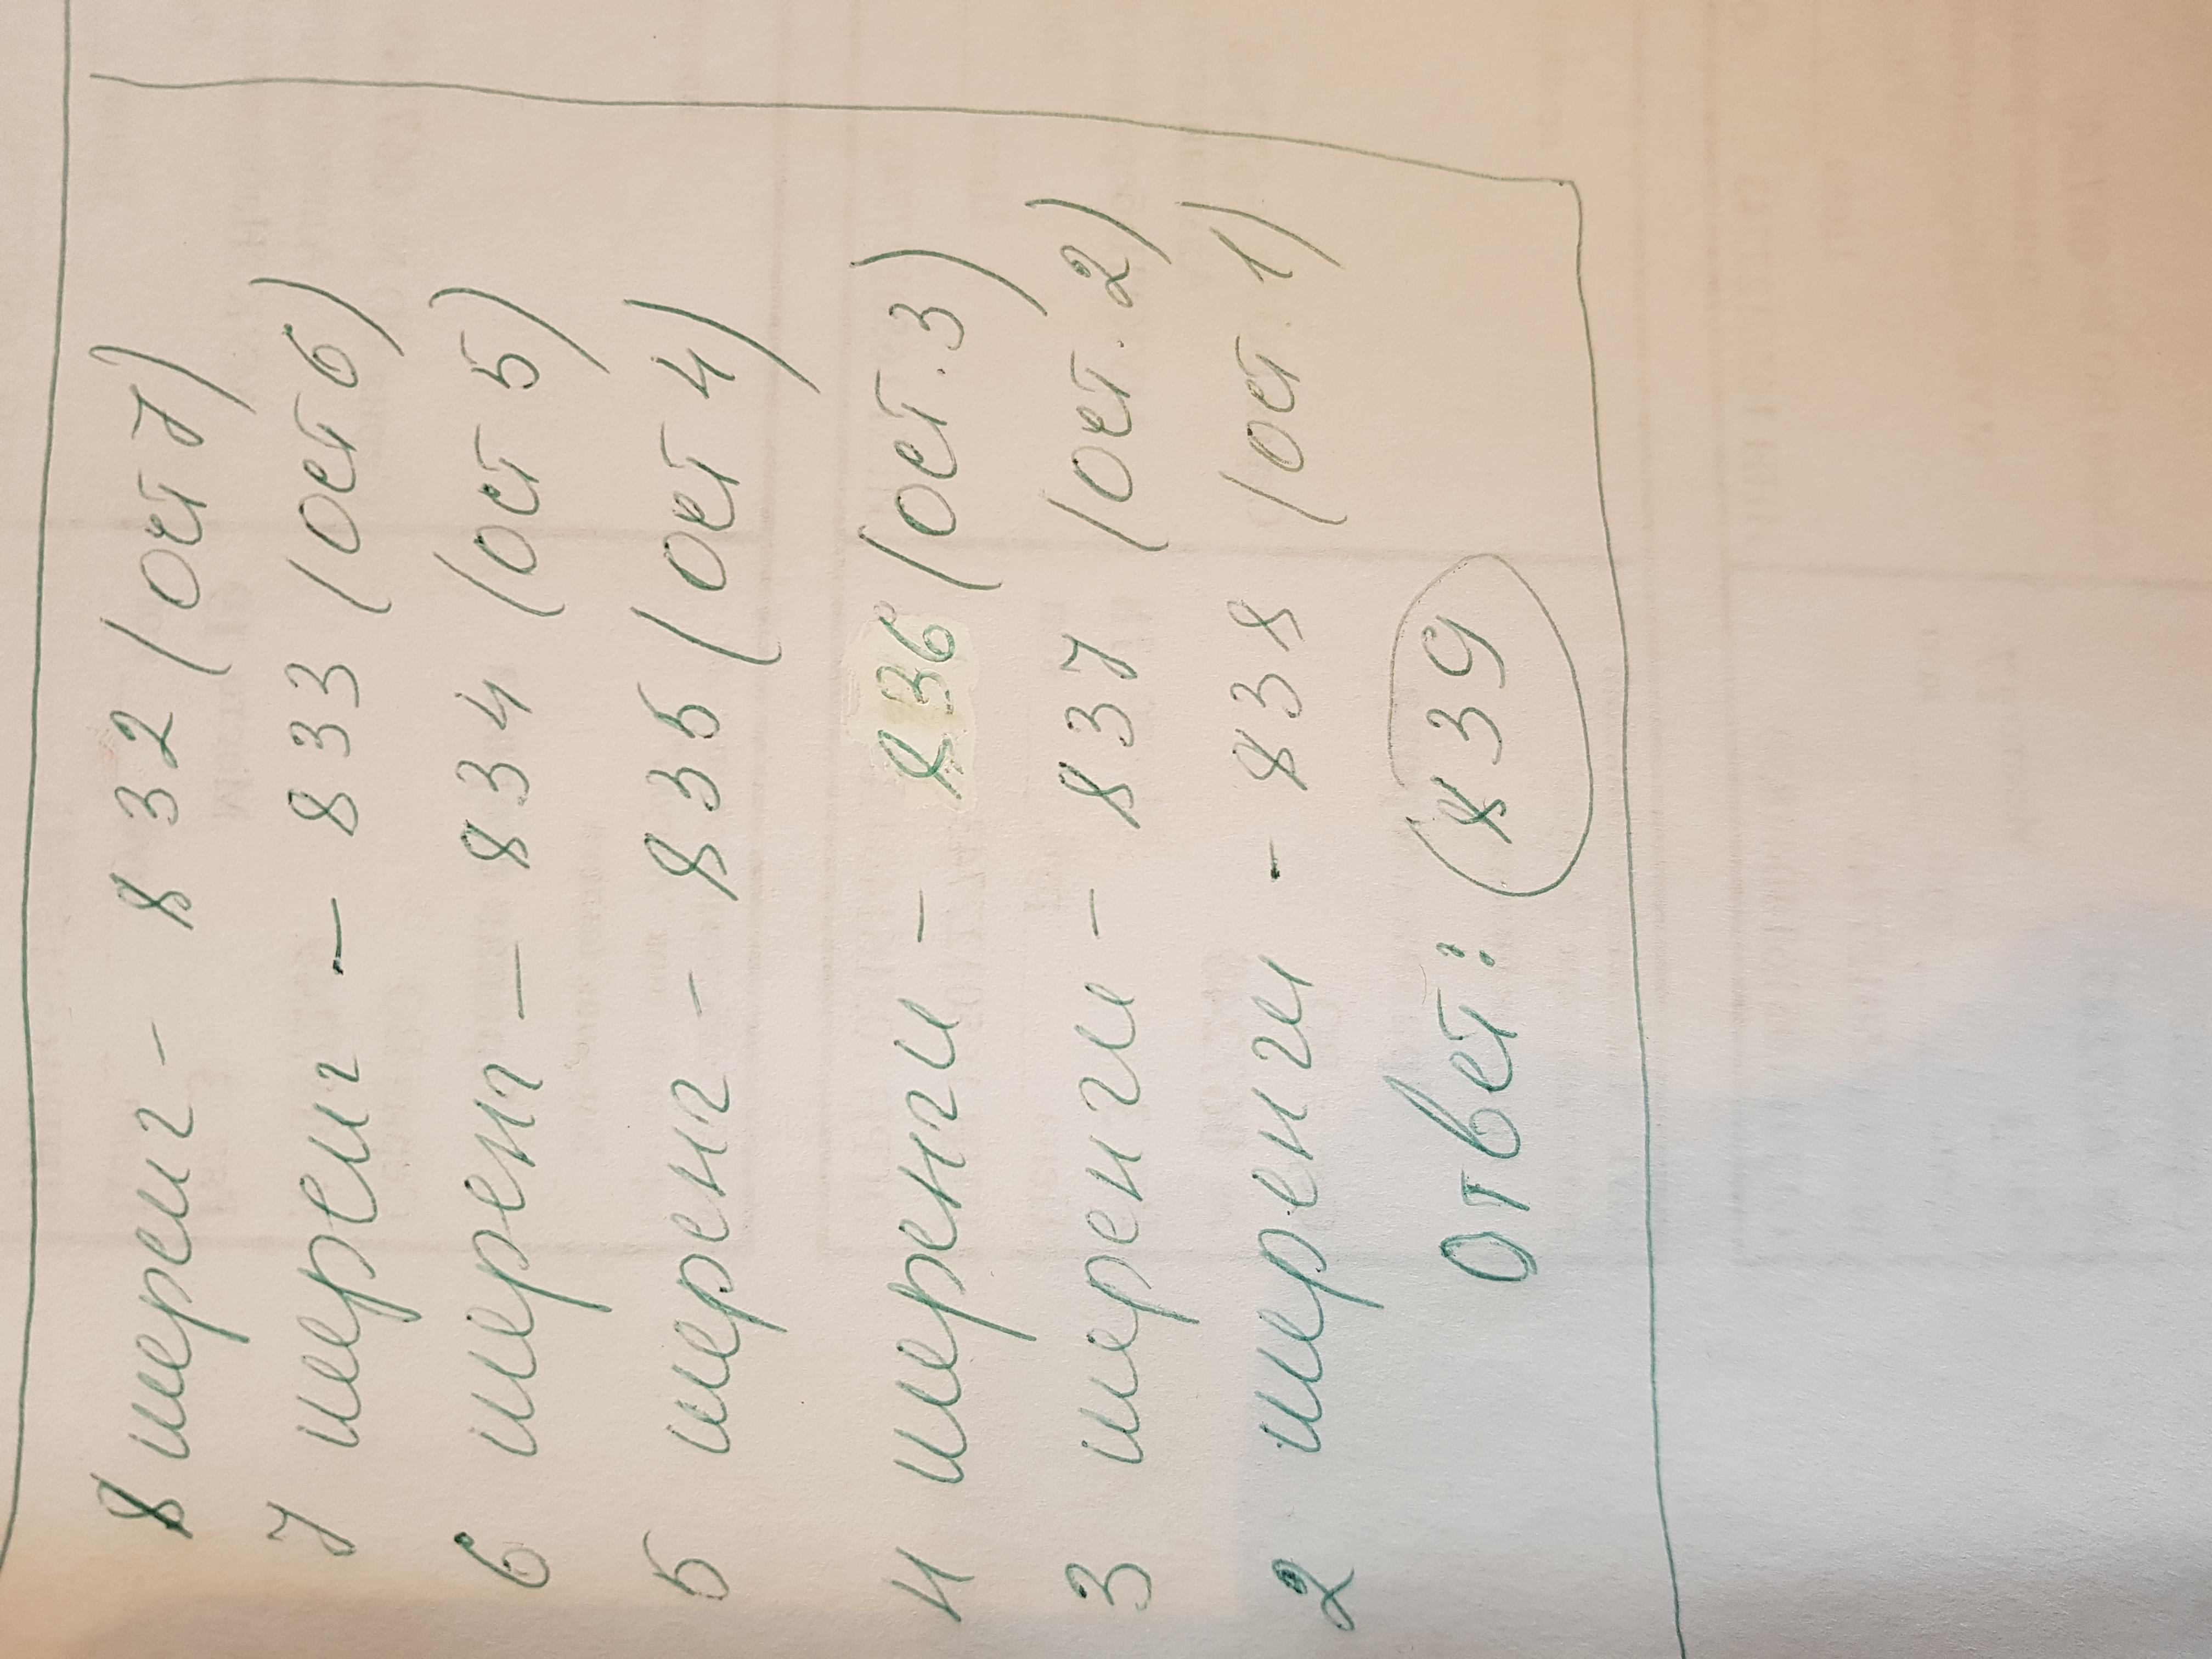 8 шеренг - 832 (ост 7)
7 шеренг - 833 (ост 6)
6 шеренг - 834 (ост 5)
5 шеренг - 835 (ост 4)
4 шеренги - 836 (ост. 3)
3 шеренги - 837 (ост. 2)
2 шеренги - 838 (ост 1)
Ответ: 839